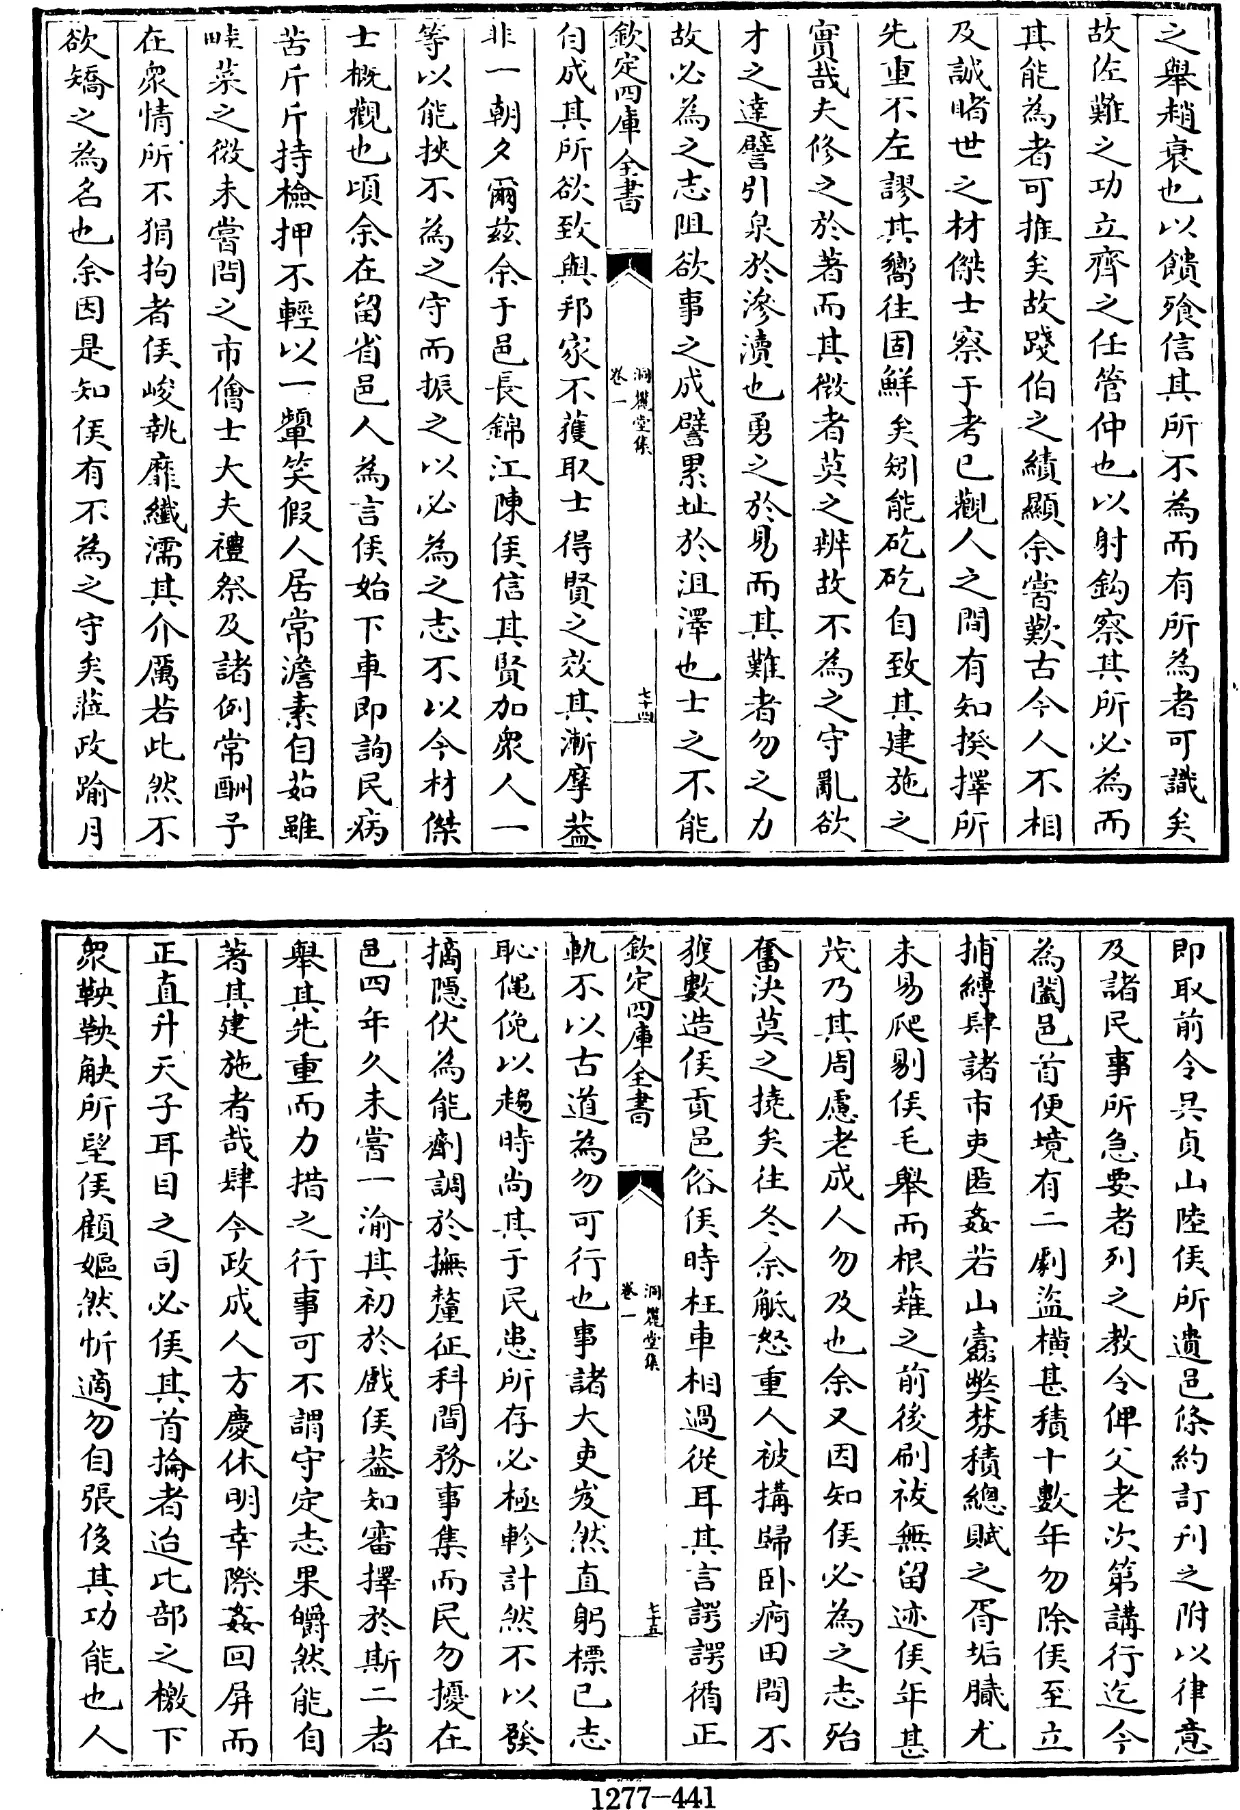 之舉趙衰也以饋飱信其所不為而有所為者可識矣
故佐難之功立齊之任管仲也以射鈎察其所必為而
其能為者可推矣故踐伯之績顯余嘗歎古今人不相
及誠睹世之材傑士察于考已觀人之間有知揆擇所
先重不左謬其嚮往固鮮矣矧能矻矻自致其建施之
實哉夫修之於著而其微者莫之辨故不為之守亂欲
才之達譬引泉於滲瀆也勇之於易而其難者勿之力
故必為之志阻欲事之成譬累址於沮澤也士之不能
欽定四庫全書
洞麓堂集
卷一
七十四
自成其所欲致與邦家不獲取士得賢之效其漸摩葢
非一朝夕爾茲余于邑長錦江陳侯信其賢加衆人一
等以能挾不為之守而振之以必為之志不以今材傑
士概觀也頃余在留省邑人為言侯始下車即詢民病
苦斤斤持檢押不輕以一顰笑假人居常澹素自茹雖
畦菜之微未嘗問之市儈士大夫禮祭及諸例常酬予
在衆情所不狷拘者侯峻執靡纖濡其介厲若此然不
欲矯之為名也余因是知侯有不為之守矣蒞政踰月
即取前令吴貞山陸侯所遺邑條約訂刋之附以律意
及諸民事所急要者列之教令俾父老次第講行迄今
為闔邑首便境有二劇盜横甚積十數年勿除侯至立
捕縛肆諸市吏匿姦若山嶽弊棼積總賦之胥垢膩尤
未易爬剔侯毛舉而根薙之前後刷祓無留迹侯年甚
茂乃其周慮老成人勿及也余又因知侯必為之志殆
奮決莫之撓矣往冬余觝怒重人被搆歸卧痾田間不
獲數造侯貢邑俗侯時枉車相過從耳其言諤諤循正
欽定四庫全書
洞麓堂集
卷一
七十五
軌不以古道為勿可行也事諸大吏岌然直躬標已志
恥僶俛以趨時尚其于民患所存必極軫計然不以發
摘隱伏為能劑調於撫釐征科間務事集而民勿擾在
邑四年久未嘗一渝其初於戲侯葢知審擇於斯二者
舉其先重而力措之行事可不謂守定志果皭然能自
著其建施者哉肆今政成人方慶休明幸際姦回屏而
正直升天子耳目之司必侯其首掄者迨比部之檄下
衆鞅鞅觖所望侯顧嫗然忻適勿自張侈其功能也人
1277-441